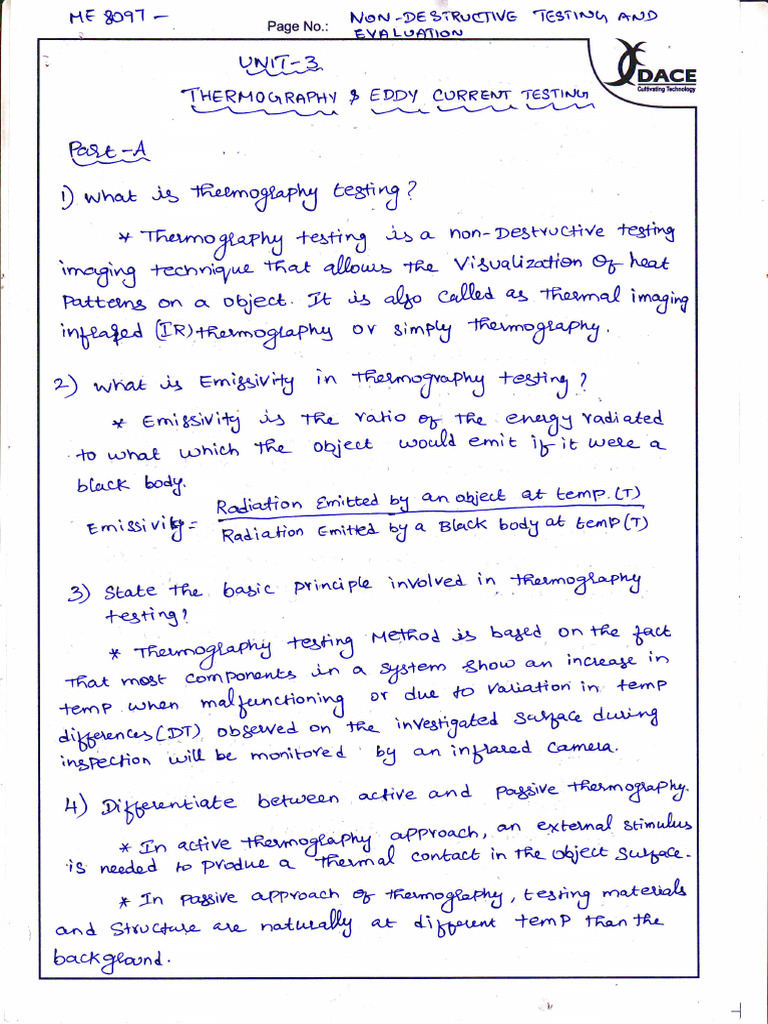 ME 8097 - Page No.: NON-DESTRUCTIVE TESTING AND
EVALUATION
UNIT-3
DACE
Cultivating Technology
THERMOGRAPHY & EDDY CURRENT TESTING
Part-A
1) What is thermography testing?
* Thermography testing is a non-Destructive testing
imaging technique that allows the Visualization of heat
Patterns on a object. It is also called as thermal imaging
infrared (IR) thermography or simply thermography.
2) What is Emissivity in thermography testing?
* Emissivity is the ratio of the energy radiated
to what which the object would emit if it were a
black body.
Emissivity = Radiation Emitted by an object at temp.(T)
Radiation Emitted by a Black body at temp(T)
3) State the basic principle involved in thermography
testing?
* Thermography testing Method is based on the fact
that most components in a system show an increase in
temp when malfunctioning or due to variation in temp
differences (DT) observed on the investigated surface during
inspection will be monitored by an infrared camera.
4) Differentiate between active and passive thermography.
* In active thermography approach, an external stimulus
is needed to produe a thermal contact in the object surface.
* In passive approach of thermography, testing materials
and structure are naturally at different temp than the
background.